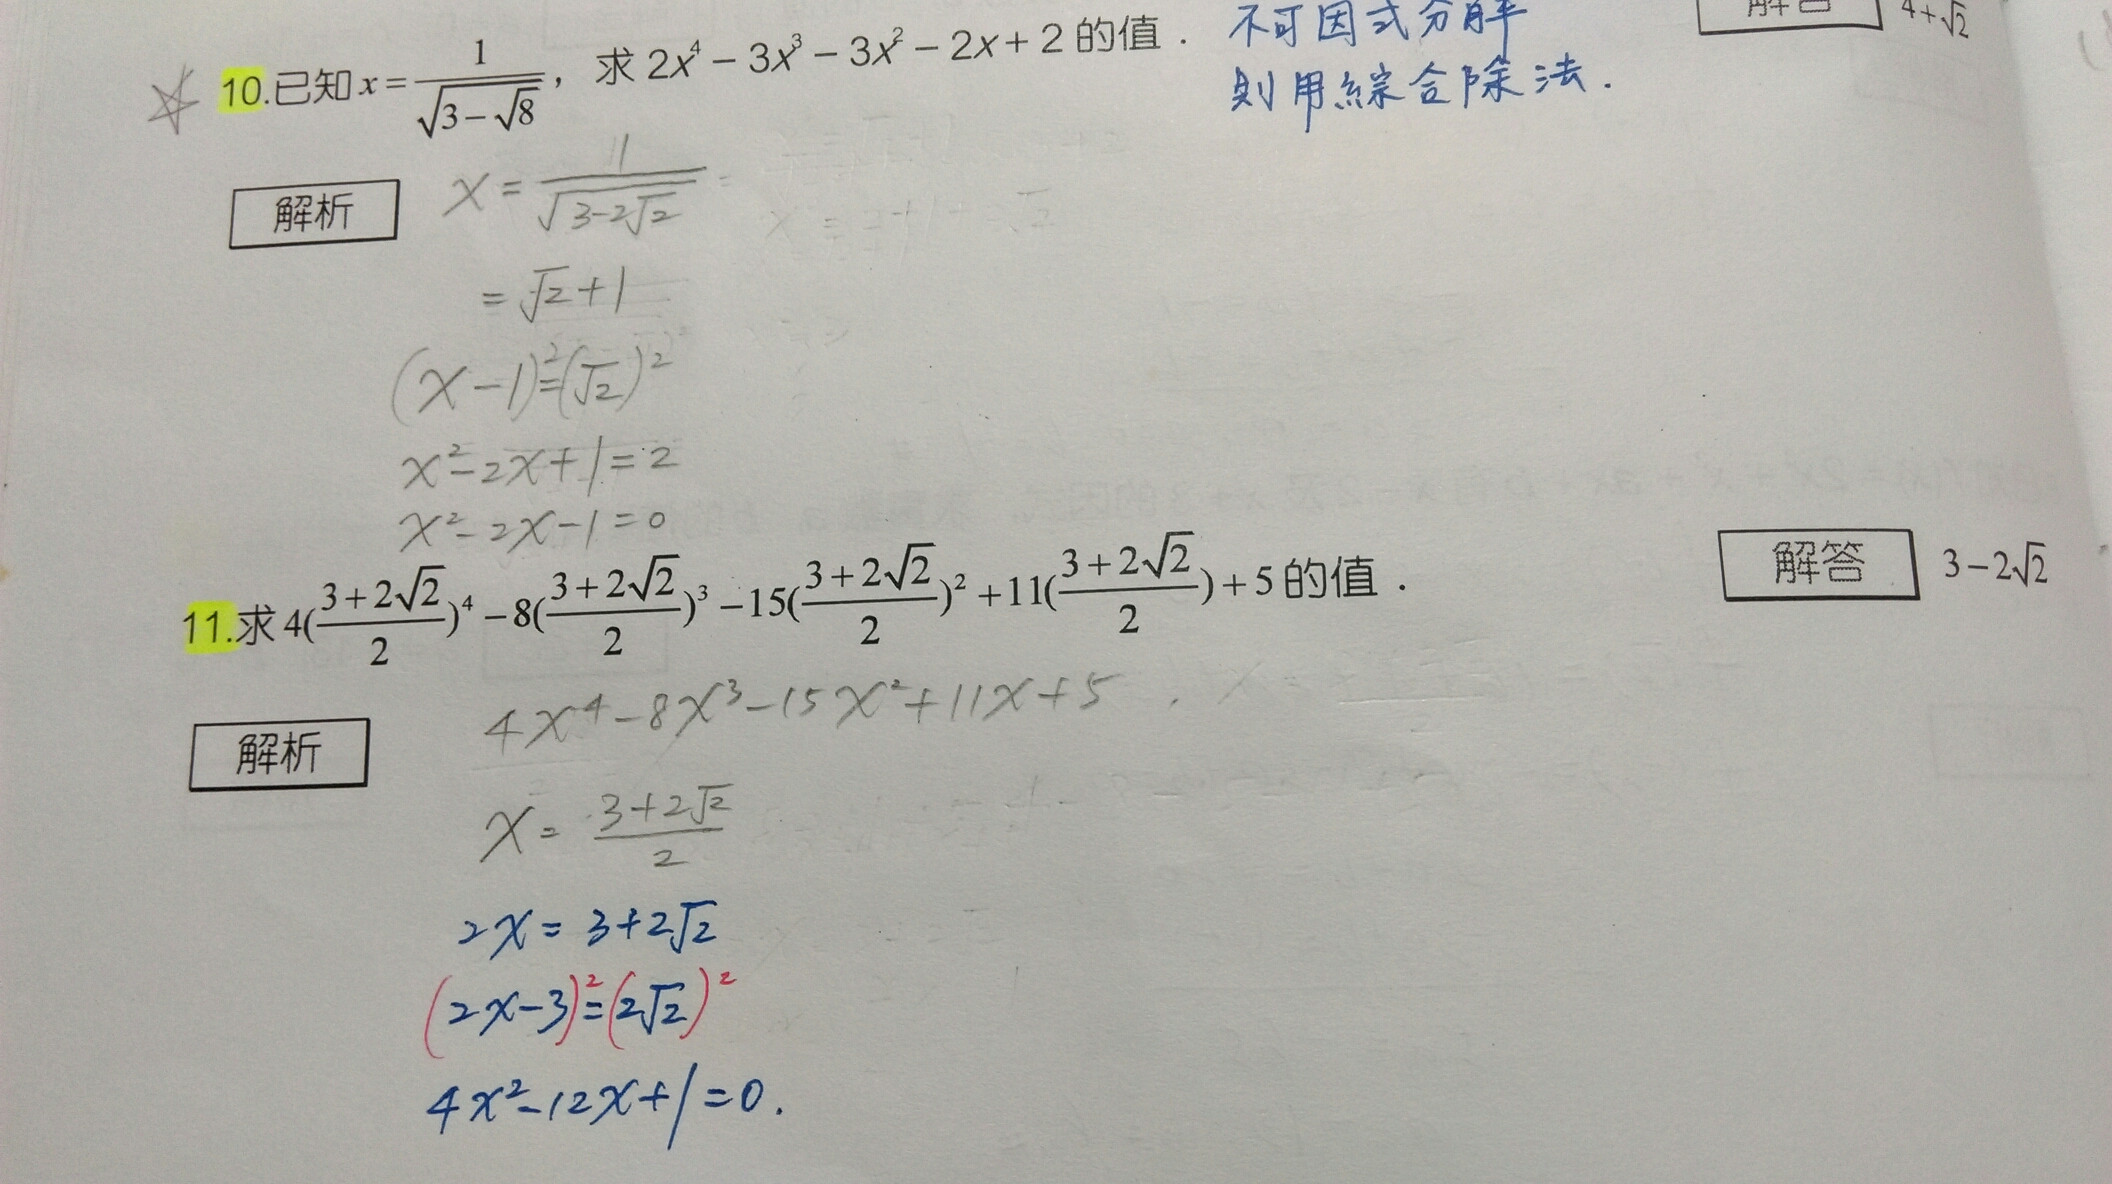 10.已知 x = 1/√(3−√8)，求 2x⁴ − 3x³ − 3x² − 2x + 2 的值．
不可因式分解
則用綜合除法．
解答 4+√2
解析
x = 1/√(3−2√2)
= √2+1
(x−1)²=(√2)²
x²−2x+1=2
x²−2x−1=0
11.求 4((3+2√2)/2)⁴ − 8((3+2√2)/2)³ − 15((3+2√2)/2)² + 11((3+2√2)/2) + 5 的值．
解答 3−2√2
解析
4x⁴−8x³−15x²+11x+5
x= (3+2√2)/2
2x= 3+2√2
(2x−3)²=(2√2)²
4x²−12x+1=0.